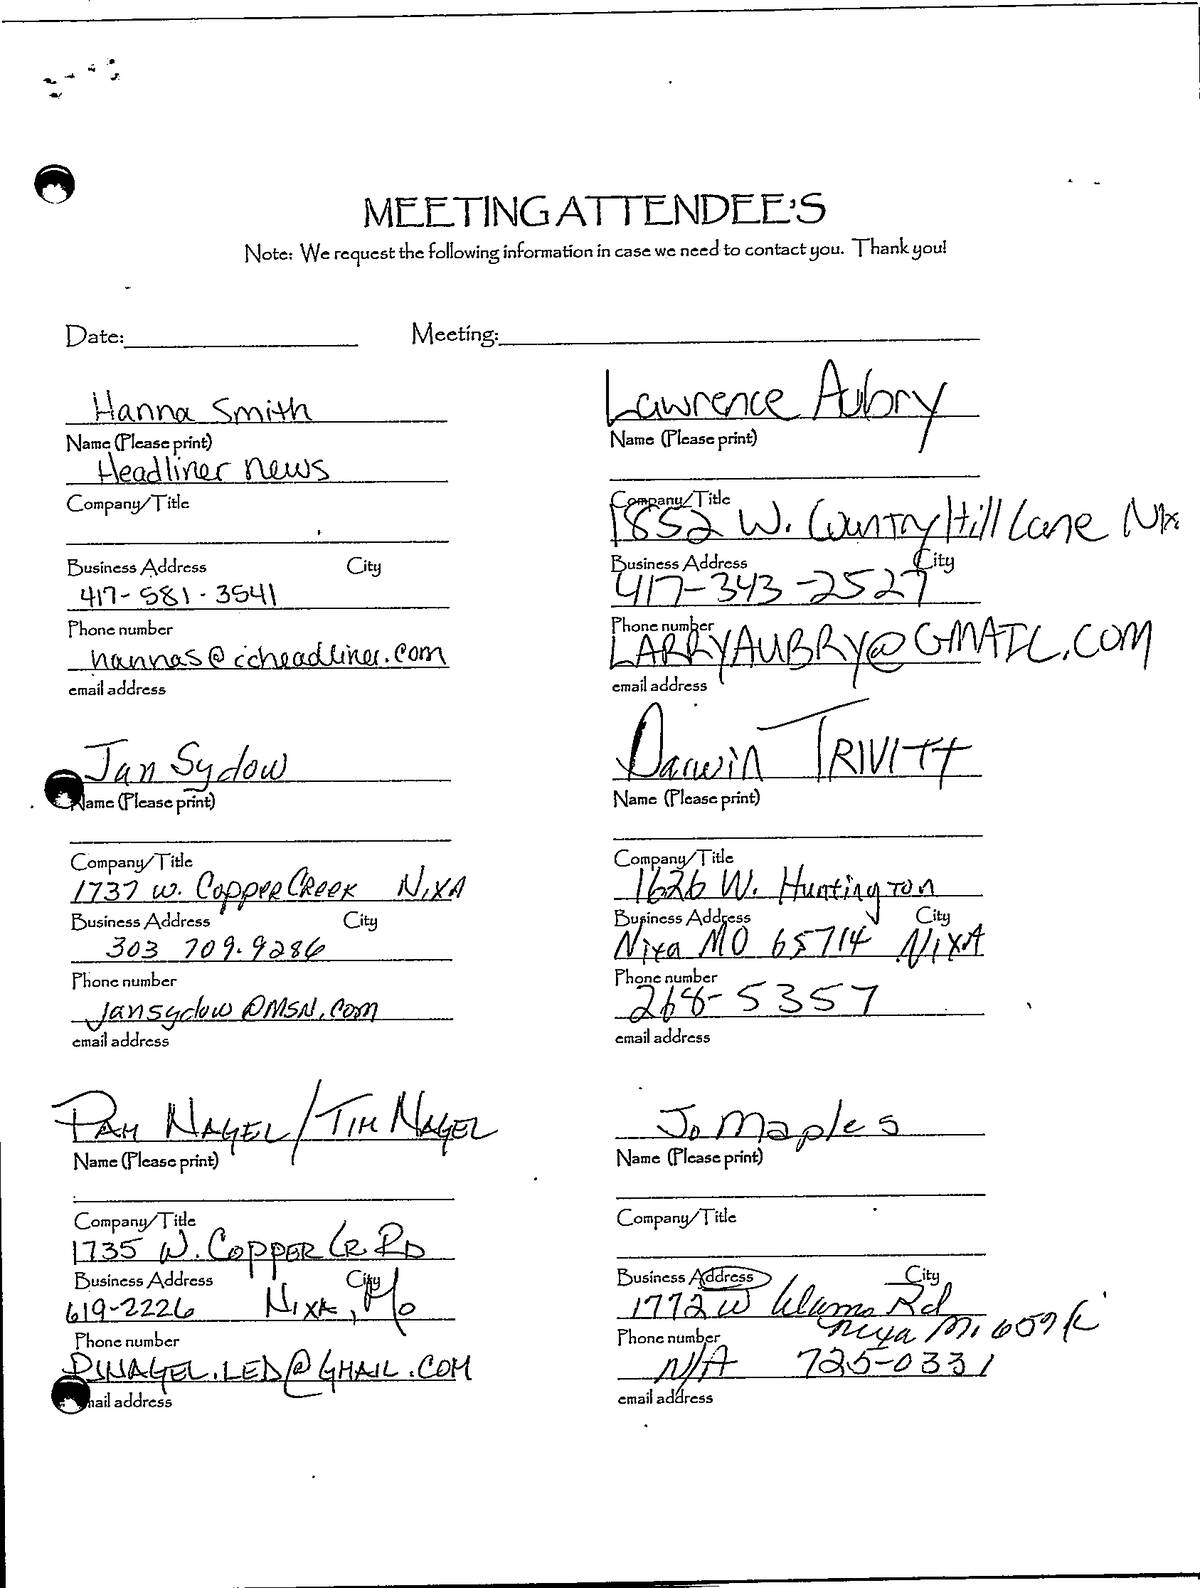 MEETING ATTENDEE'S
Note: We request the following information in case we need to contact you. Thank you!
Date: Meeting:
Hanna Smith
Name (Please print)
Headliner News
Company/Title
Business Address City
417-581-3541
Phone number
hannas@ccheadliner.com
email address
Lawrence Aubry
Name (Please print)
Company/Title
1852 W. Country Hill Lane Nix
Business Address City
417-343-2527
Phone number
LARRYAUBRY@GMAIL.COM
email address
Jan Sydow
Name (Please print)
Company/Title
1737 W. Copper Creek Nixa
Business Address City
303 709-9286
Phone number
jansydow@MSN.com
email address
Darwin TRIVITT
Name (Please print)
Company/Title
1626 W. Huntington
Business Address City
Nixa MO 65714 NIXA
Phone number
268-5357
email address
PAM NAGEL/TIM NAGEL
Name (Please print)
Company/Title
1735 W. COPPER CR RD
Business Address City
619-2226 NIXA, Mo
Phone number
PJNAGEL.LED@GMAIL.COM
email address
Jo Maples
Name (Please print)
Company/Title
Business Address City
1772 W Rd
Nixa
Phone number
N/A 725-0331
email address